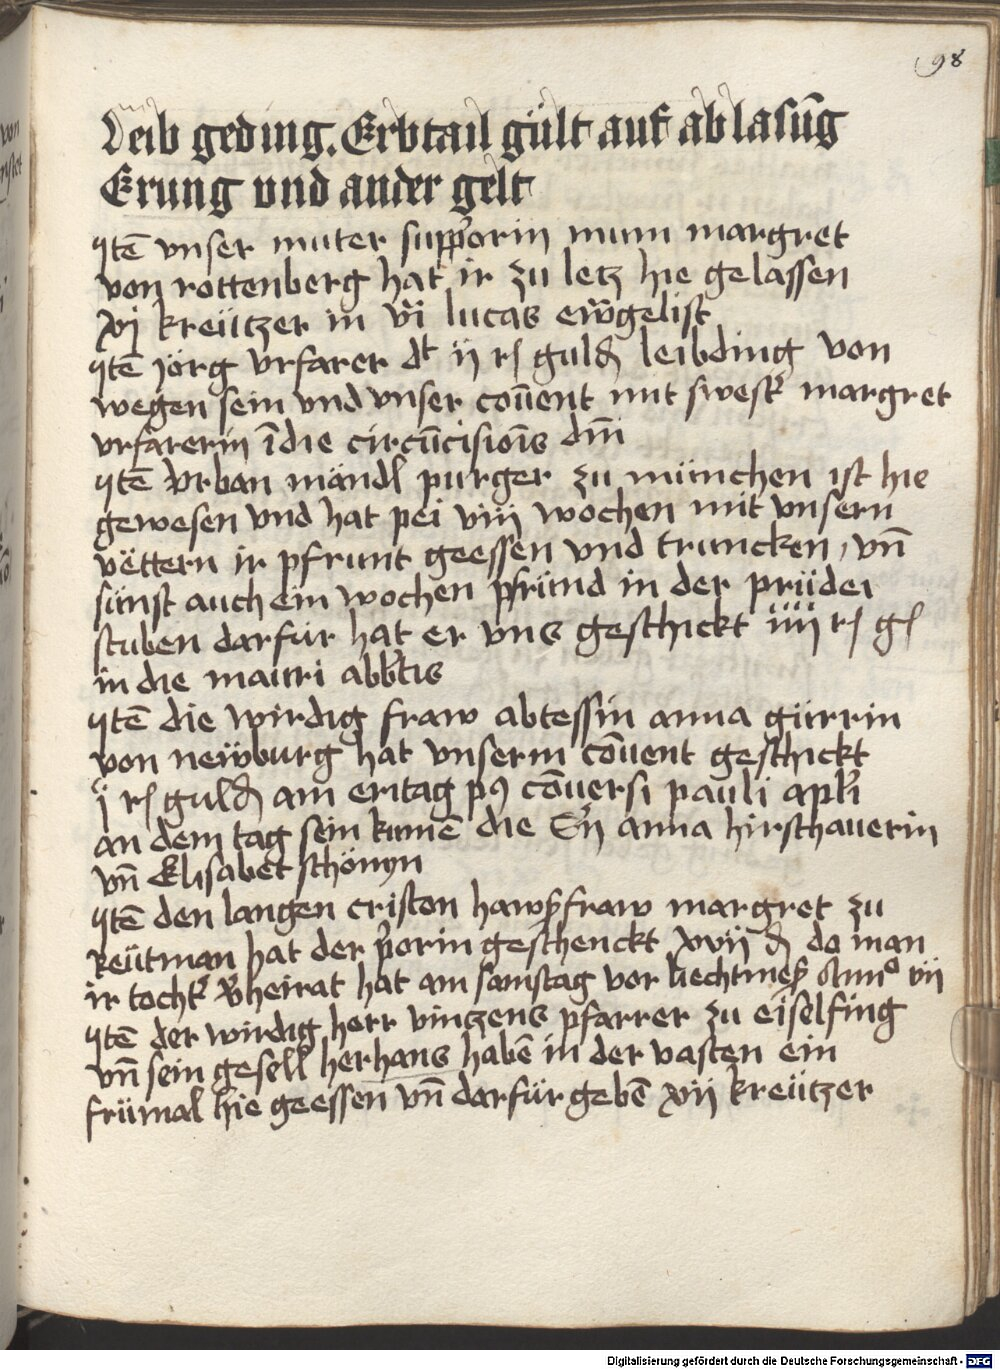 98
Leib geding. Erbtail gült auf ablasūg
Erung vnd ander gelt
Itē vnser muter supp̄orin mum margret
von rottenberg hat ir zu letz hie gelassen
xij kreützer in vi͂ lucas ewāgelist
Itē jörg vrfarer dt ij rſ guldn̄ leibding von
wegen sein vnd vnser cōuent mit swest͛ margret
vrfarerin ī die circūcisiōis dm̄i
Itē Vrban mändl purger zu münchen ist hie
gewesen vnd hat pei viij wochen mit vnsern
vëttern ir pfrunt geessen vnd truncken, vn̄
sünst auch ein wochen pfründ in der prüder
stuben darfür hat er vns geschickt iiij rſ gſ
in die mauri abb̄tis
Itē die wirdig fraw abtessin anna gürrin
von newburg hat vnserm cōuent geschickt
j rſ guldn̄ am eritag pꝰ cōuersi pauli apl̄i
an dem tag sein kumē die Er̄n anna hirschauerin
vn̄ Elisabet schönyn
Itē den langen cristen hawßfraw margret zu
Reütman hat der p̄orin geschenckt xvij dn̄ do man
ir tocht͛ v͛heirat hat am samstag vor liechtmeß Anno vij
Itē der wirdig herr vintzens pfarrer zu eiselfing
vn̄ sein gesell herhans habē in der vasten ein
frümal hie geessen vn̄ darfür gebē xij kreützer
Digitalisierung gefördert durch die Deutsche Forschungsgemeinschaft - DFG